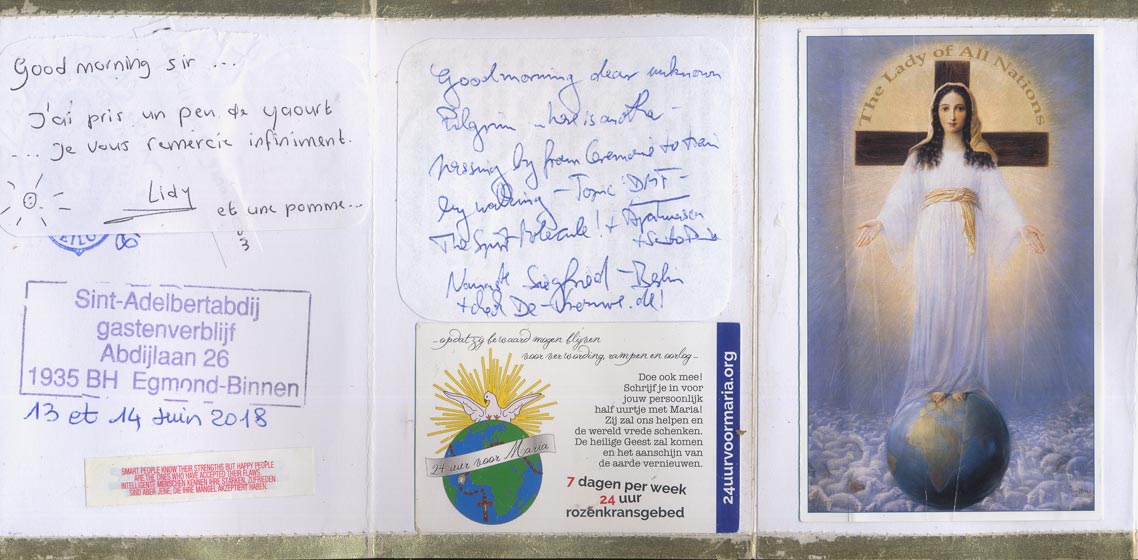 Good morning sir ...
J'ai pris un peu de yaourt
... Je vous remercie infiniment.
Lidy
et une pomme...
Sint-Adelbertabdij
gastenverblijf
Abdijlaan 26
1935 BH Egmond-Binnen
13 et 14 Juin 2018
SMART PEOPLE KNOW THEIR STRENGTHS BUT HAPPY PEOPLE
ARE THE ONES WHO HAVE ACCEPTED THEIR FLAWS.
INTELLIGENTE MENSCHEN KENNEN IHRE STÄRKEN, ZUFRIEDEN
SIND ABER JENE, DIE IHRE MÄNGEL AKZEPTIERT HABEN.
Good morning dear unknown
Pilgrim here is another
passing by from to train
by walking - Topic DMT -
The Spirit Molecule! +
Namaste Siegfried - Berlin
...opdat zij bewaard mogen blijven
voor verwording, rampen en oorlog...
Doe ook mee!
Schrijf je in voor
jouw persoonlijk
half uurtje met Maria!
Zij zal ons helpen en
de wereld vrede schenken.
De heilige Geest zal komen
en het aanschijn van
de aarde vernieuwen.
24 uur voor Maria
7 dagen per week
24 uur
rozenkransgebed
24uurvoormaria.org
The Lady of All Nations